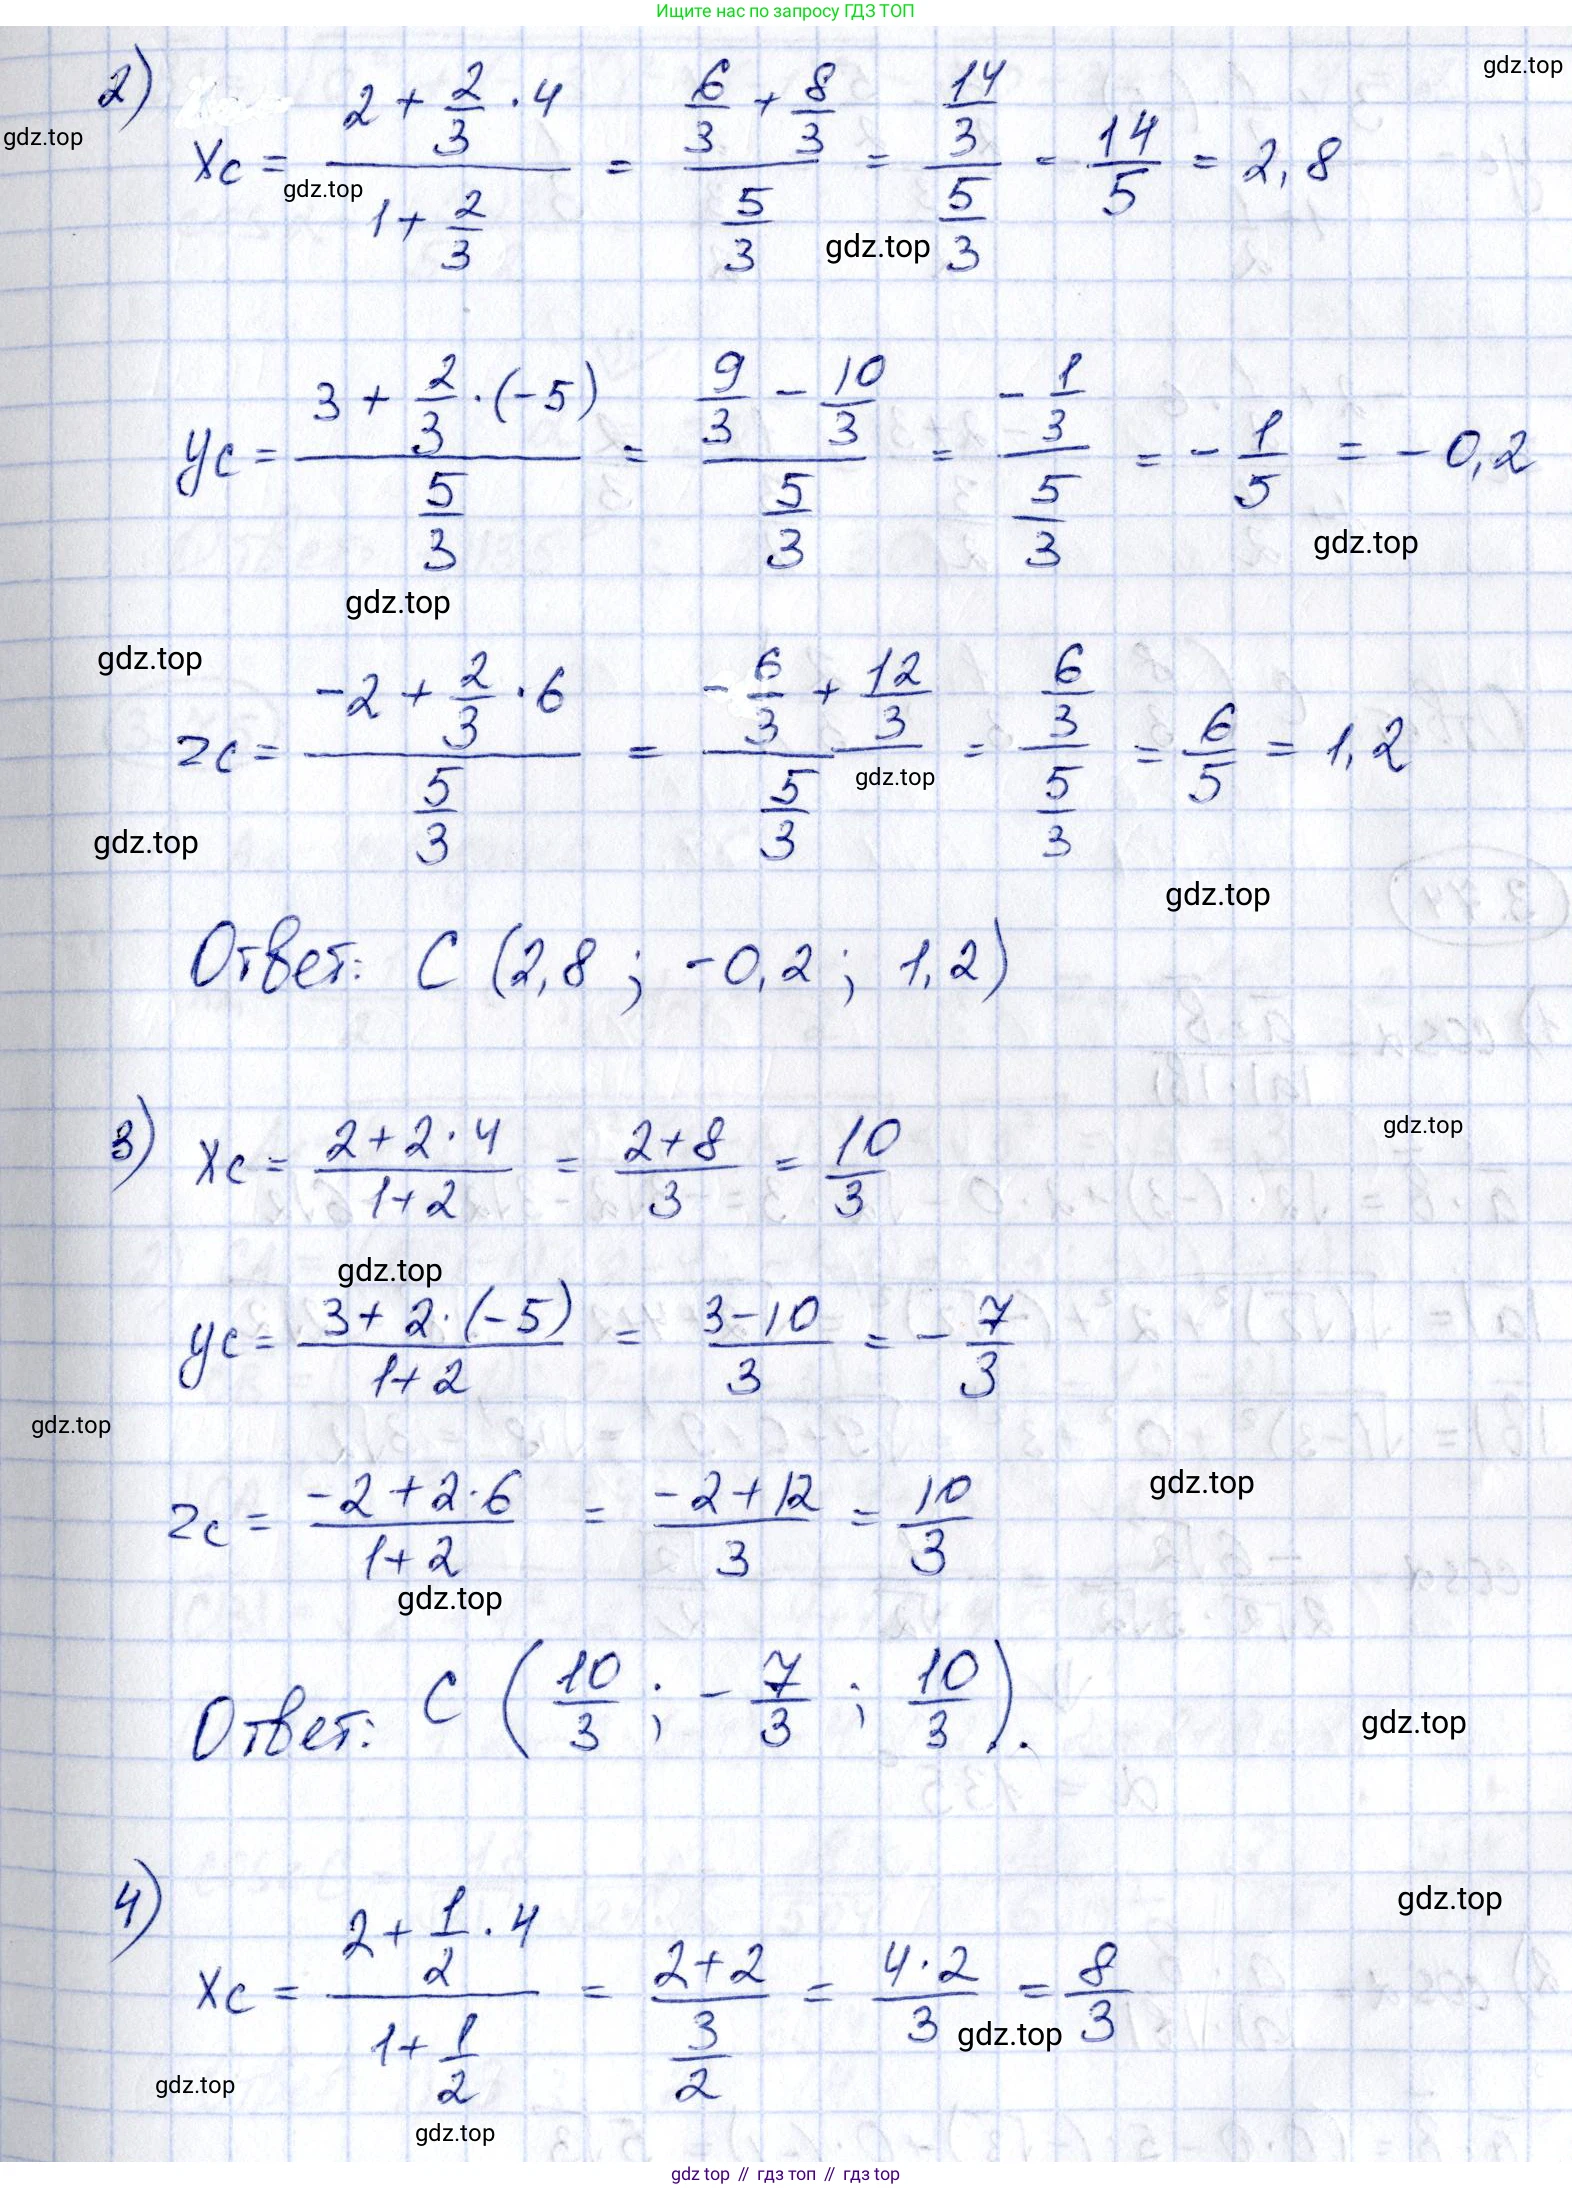 Ищите нас по запросу ГДЗ ТОП
gdz.top
gdz.top
2) xc = (2 + 2/3 · 4)/(1 + 2/3) = (6/3 + 8/3)/(5/3) = (14/3)/(5/3) = 14/5 = 2,8
gdz.top
gdz.top
yc = (3 + 2/3 · (-5))/(5/3) = (9/3 - 10/3)/(5/3) = (-1/3)/(5/3) = -1/5 = -0,2
gdz.top
gdz.top
gdz.top
zc = (-2 + 2/3 · 6)/(5/3) = (-6/3 + 12/3)/(5/3) = (6/3)/(5/3) = 6/5 = 1,2
gdz.top
gdz.top
gdz.top
Ответ: C (2,8 ; -0,2 ; 1,2)
gdz.top
3) xc = (2 + 2 · 4)/(1+2) = (2+8)/3 = 10/3
gdz.top
yc = (3 + 2 · (-5))/(1+2) = (3-10)/3 = -7/3
gdz.top
gdz.top
zc = (-2 + 2 · 6)/(1+2) = (-2+12)/3 = 10/3
gdz.top
Ответ: C (10/3 ; -7/3 ; 10/3).
gdz.top
gdz.top
4) xc = (2 + 1/2 · 4)/(1 + 1/2) = (2+2)/(3/2) = (4·2)/3 = 8/3
gdz.top
gdz.top
gdz.top
gdz top // гдз топ // гдз top